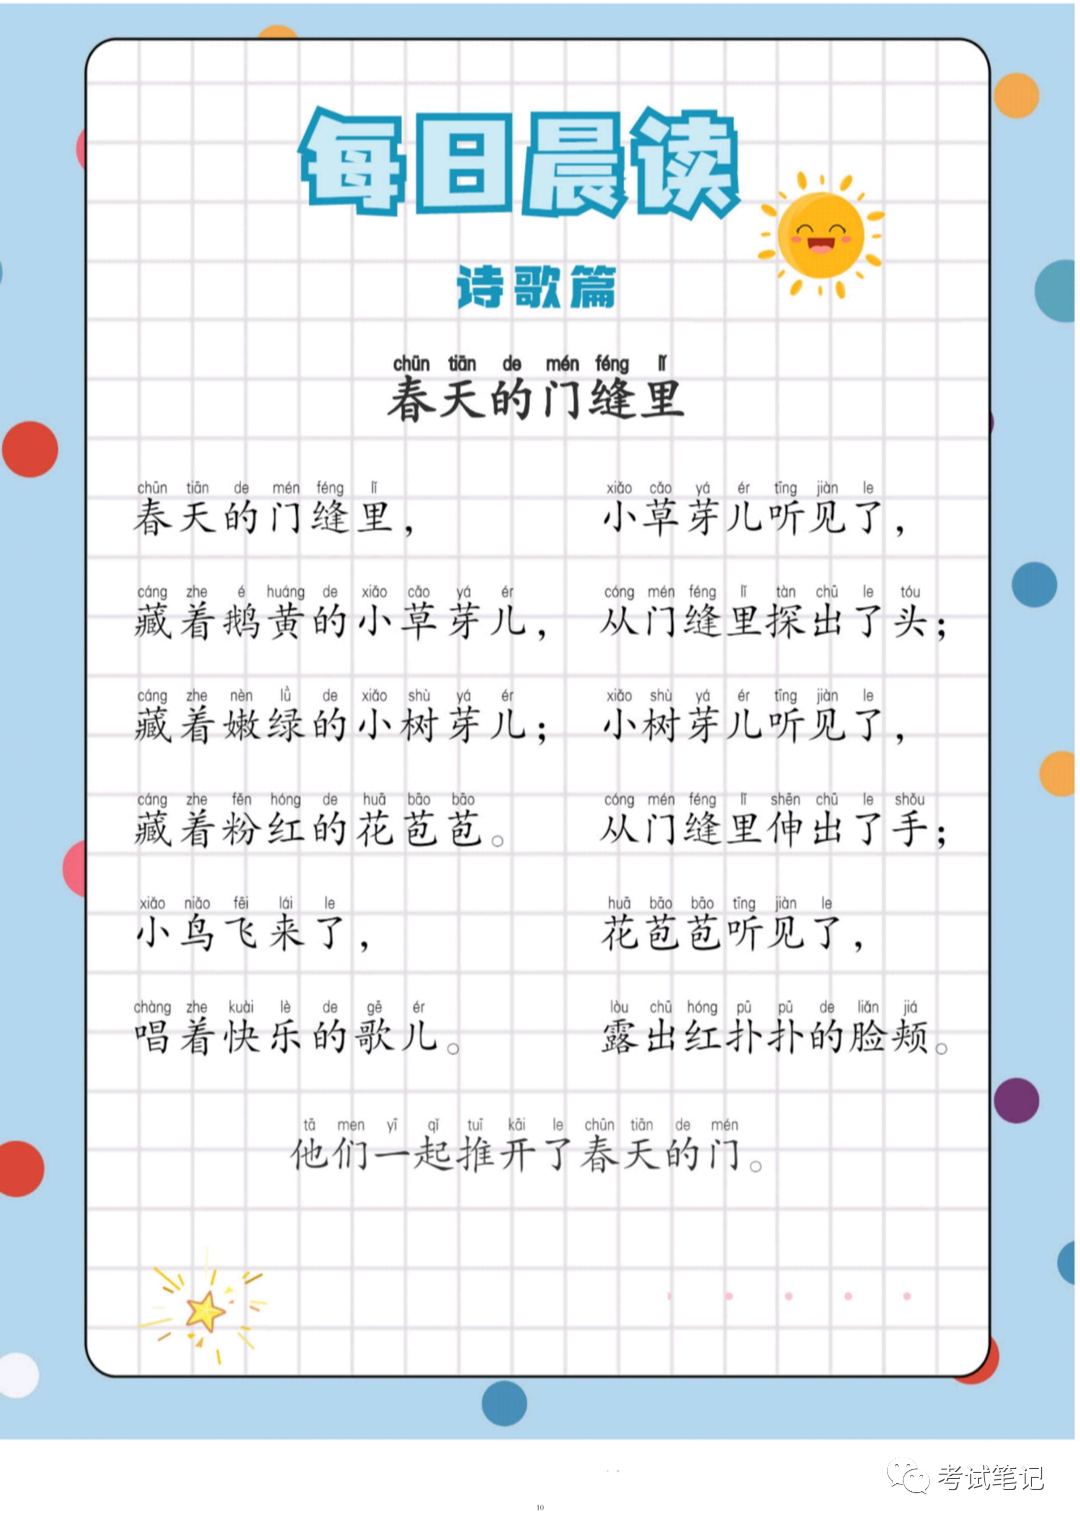 每日晨读
诗歌篇
chūn tiān de mén féng lǐ
春天的门缝里
chūn tiān de mén féng lǐ
春天的门缝里，
cáng zhe é huáng de xiǎo cǎo yá ér
藏着鹅黄的小草芽儿，
cáng zhe nèn lǜ de xiǎo shù yá ér
藏着嫩绿的小树芽儿；
cáng zhe fěn hóng de huā bāo bāo
藏着粉红的花苞苞。
xiǎo niǎo fēi lái le
小鸟飞来了，
chàng zhe kuài lè de gē ér
唱着快乐的歌儿。
xiǎo cǎo yá ér tīng jiàn le
小草芽儿听见了，
cóng mén féng lǐ tàn chū le tóu
从门缝里探出了头；
xiǎo shù yá ér tīng jiàn le
小树芽儿听见了，
cóng mén féng lǐ shēn chū le shǒu
从门缝里伸出了手；
huā bāo bāo tīng jiàn le
花苞苞听见了，
lòu chū hóng pū pū de liǎn jiá
露出红扑扑的脸颊。
tā men yī qǐ tuī kāi le chūn tiān de mén
他们一起推开了春天的门。
考试笔记
10